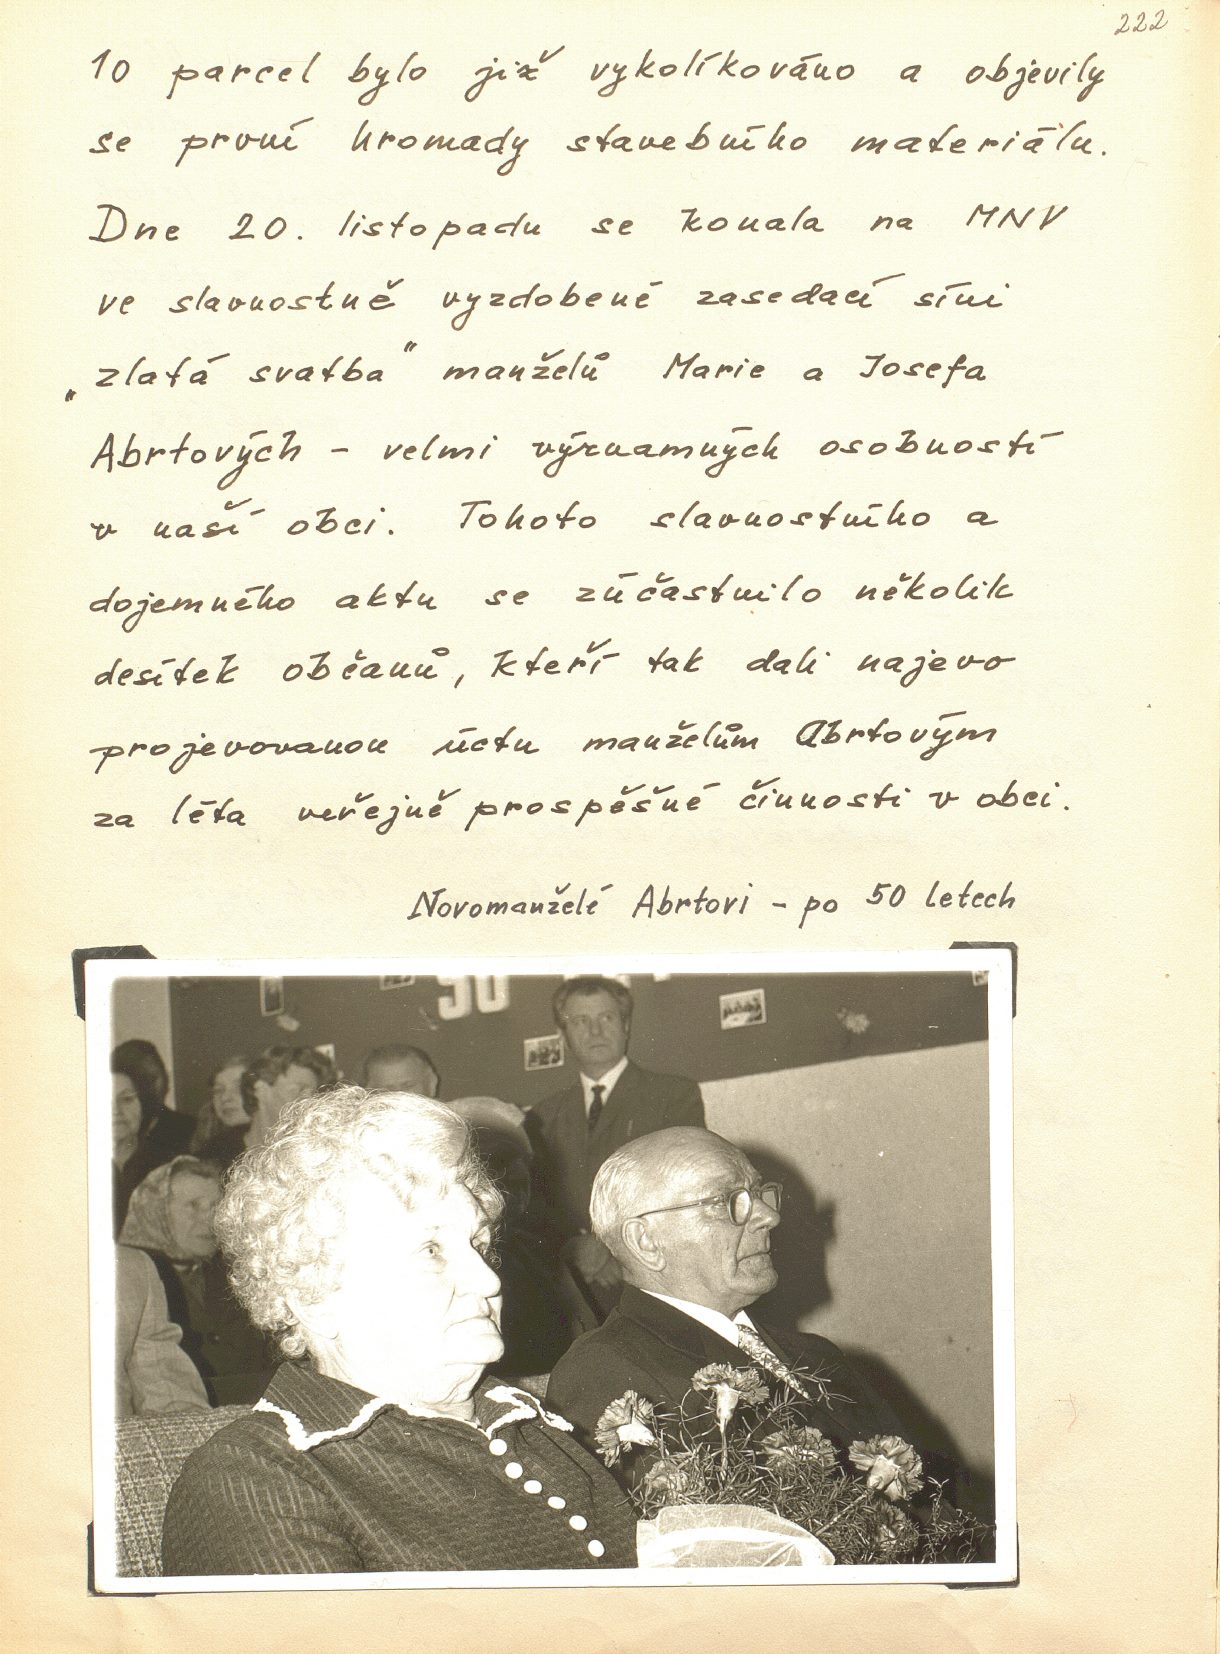 222
10 parcel bylo již vykolíkováno a objevily
se první hromady stavebního materiálu.
Dne 20. listopadu se konala na MNV
ve slavnostně vyzdobené zasedací síni
„zlatá svatba" manželů Marie a Josefa
Abrtových - velmi významných osobností
v naší obci. Tohoto slavnostního a
dojemného aktu se zúčastnilo několik
desítek občanů, kteří tak dali najevo
projevovanou úctu manželům Abrtovým
za léta veřejně prospěšné činnosti v obci.
Novomanželé Abrtovi - po 50 letech
50